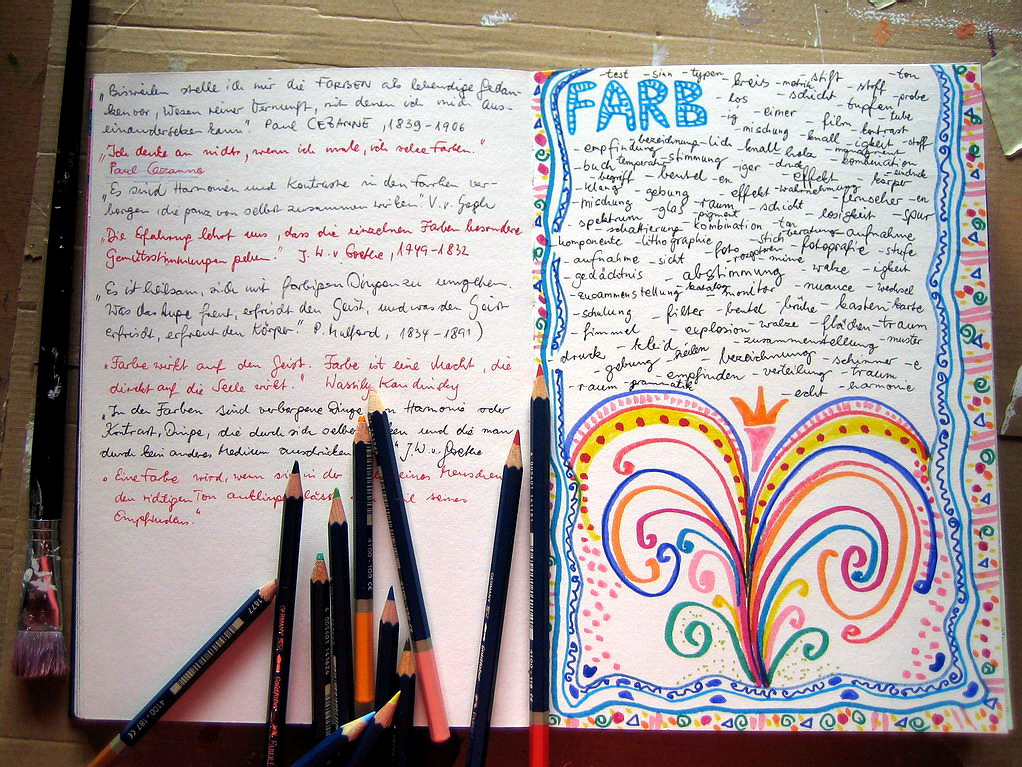 „Bisweilen stelle ich mir die FARBEN als lebendige Gedan-
ken vor, Wesen reiner Vernunft, mit denen ich mich aus-
einandersetzen kann." Paul CEZANNE, 1839-1906
„Ich denke an nichts, wenn ich male, ich sehe Farben."
Paul Cezanne
„Es sind Harmonien und Kontraste in den Farben ver-
borgen, die ganz von selbst zusammenwirken" V. v. Gogh
„Die Erfahrung lehrt uns, dass die einzelnen Farben besondere
Gemütsstimmungen geben." J. W. v Goethe, 1749-1832
„Es ist heilsam, sich mit farbigen Dingen zu umgeben.
Was das Auge freut, erfrischt den Geist, und was den Geist
erfrischt, erfreut den Körper." P. Mulford, 1834-1891)
„Farbe wirkt auf den Geist. Farbe ist eine Macht, die
direkt auf die Seele wirkt." Wassily Kandinsky
„In den Farben sind verborgene Dinge von Harmonie oder
Kontrast, Dinge, die durch sich selbst und die man
durch kein anderes Medium ausdrücken " J. W. v Goethe
Eine Farbe wird, wenn sie in der eines Menschen
den richtigen Ton seines
Empfindens."
FARB
-test -sinn -typen -kreis -motiv -stift -stoff -ton
-los -schicht -tupfen -probe
-ig -eimer -film -tube
-mischung -knall -kontrast
-empfindung -bezeichnung -lich -knall -igkeit -stoff
-buch -temperatur -stimmung -holz -management -kombination
-begriff -beutel -en -iger -druck -effekt -eindruck -körper
-klang -gebung -effekt -wahrnehmung -fernseher -en
-mischung -glas -raum -schicht -losigkeit -spur
-spektrum -schattierung -pigment -kombination -ton -beratung -aufnahme
-komponente -lithographie -stich -fotografie -stufe
-aufnahme -sicht -foto -rezeptoren -mine -walze -igkeit
-gedächtnis -abstimmung -nuance -wechsel
-zusammenstellung -katalog -monitor -brühe -kasten -karte
-schulung -filter -beutel -flächen -traum
-himmel -explosion -walze -muster
-druck -kleid -zusammenstellung -schimmer -e
-gebung -heilen -bezeichnung -traum
-raum -grammatik -empfinden -verteilung -harmonie
-echt